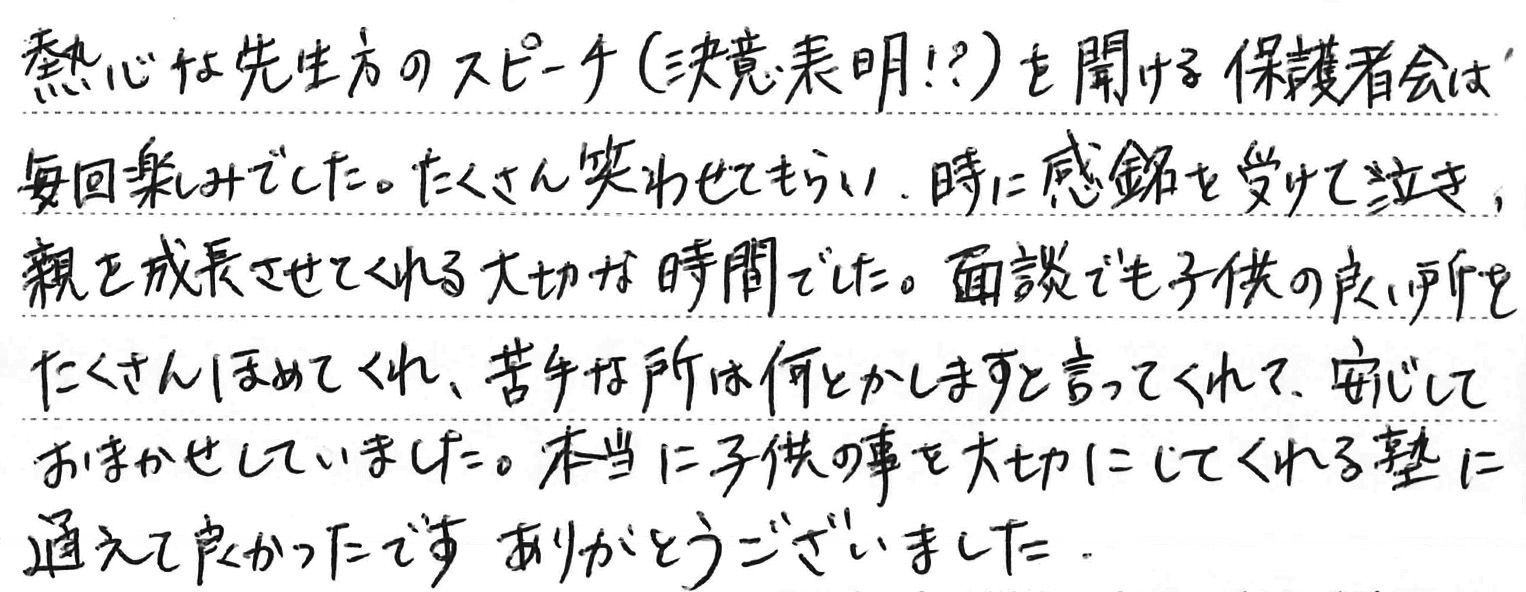 熱心な先生方のスピーチ(決意表明!?)を聞ける保護者会は
毎回楽しみでした。たくさん笑わせてもらい、時に感銘を受けて泣き、
親を成長させてくれる大切な時間でした。面談でも子供の良い所を
たくさんほめてくれ、苦手な所は何とかしますと言ってくれて、安心して
おまかせしていました。本当に子供の事を大切にしてくれる塾に
通えて良かったです ありがとうございました.